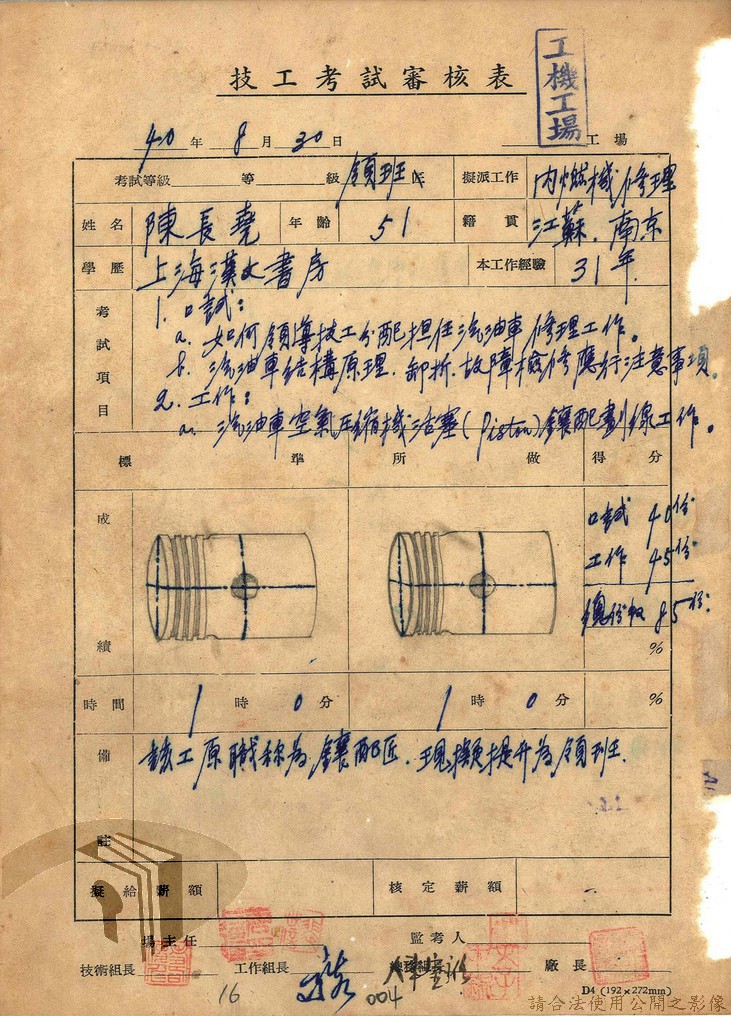 工機工場
技工考試審核表
40年8月30日 工場
考試等級 等 級 領班匠 擬派工作 內燃機修理
姓名 陳長堯 年齡 51 籍貫 江蘇.南京
學歷 上海漢文書房 本工作經驗 31年
考試項目
1. 口試:
a. 如何領導技工分配担任汽油車修理工作。
b. 汽油車结構原理.卸拆.故障檢修應行注意事項。
2. 工作:
a. 汽油車空氣压縮機活塞(Piston)鑲配劃線工作。
標準 所做 得分
成績
口試 40份
工作 45份
總份數 85份
%
時間 1時0分 1時0分 %
備註
該工原職称為鑲配匠.現擬提升為領班.
擬給薪額 核定薪額
場主任 監考人
技術組長 工作組長 組長 廠長
16 004
D4 (192×272mm)
請合法使用公開之影像